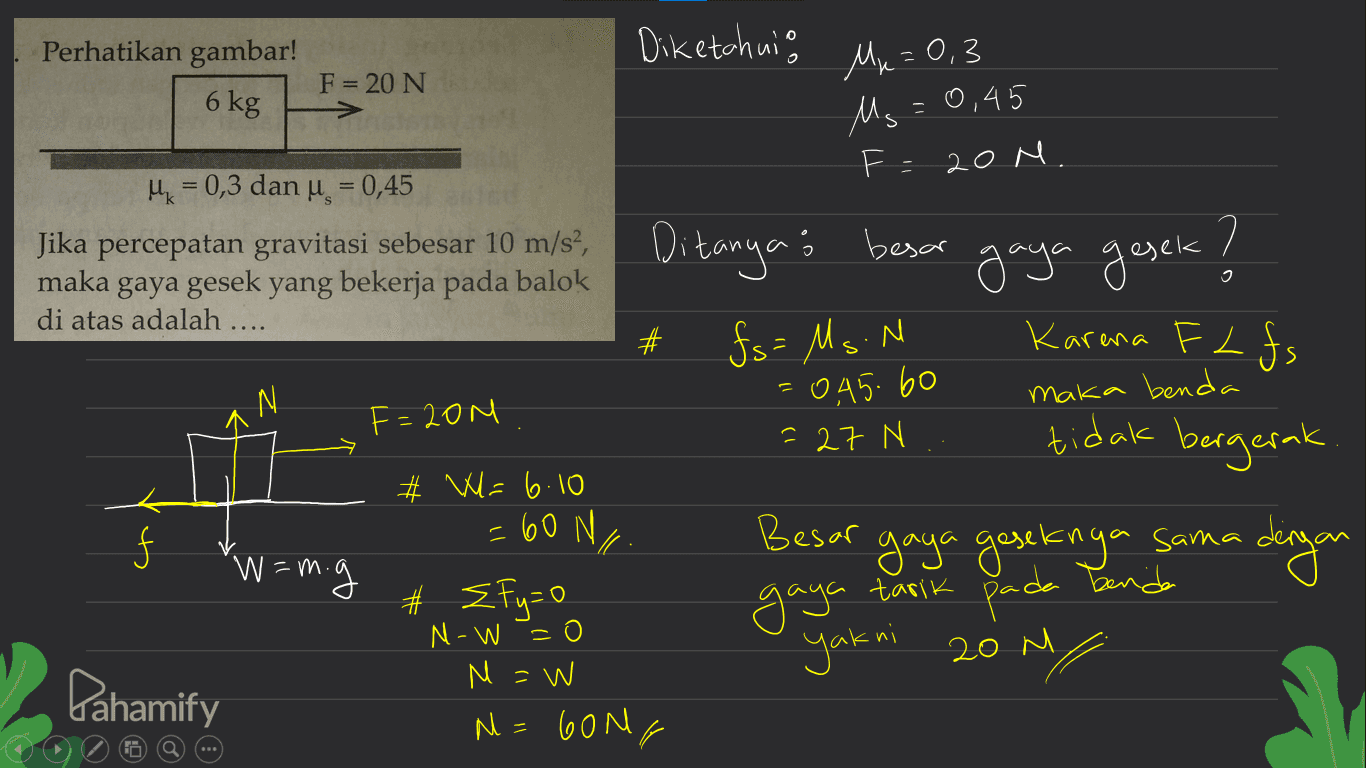 . Perhatikan gambar!
6 kg
F = 20 N
μk = 0,3 dan μs = 0,45
Jika percepatan gravitasi sebesar 10 m/s²,
maka gaya gesek yang bekerja pada balok
di atas adalah ....
Diketahui:
μk = 0,3
μs = 0,45
F = 20 N.
Ditanya: besar gaya gesek?
N
F = 20 N.
f
W = m.g
# W = 6.10
= 60 N //.
# ΣFy = 0
N - W = 0
N = W
N = 60 N //
# fs = μs. N
= 0,45. 60
= 27 N.
Karena F < fs
maka benda
tidak bergerak.
Besar gaya geseknya sama dengan
gaya tarik pada benda
yakni 20 N //
Pahamify